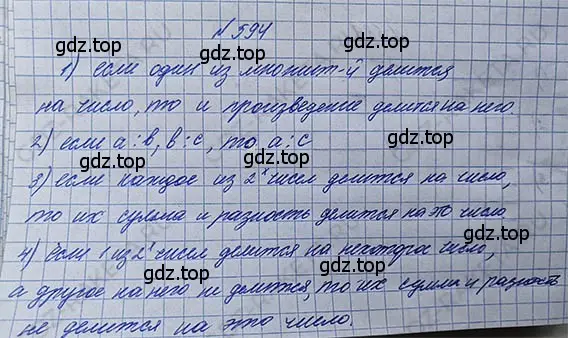 № 594
gdz.top
1) если один из множит-й делится
gdz.top gdz.top
на число, то и произведение делится на него.
gdz.top
2) если a⋮b, b⋮c, то a⋮c
gdz.top gdz.top
3) если каждое из 2х чисел делится на число,
gdz.top
то их сумма и разность делится на это число
gdz.top gdz.top
4) если 1 из 2х чисел делится на некоторое число,
gdz.top
а другое на него не делится, то их сумма и разность
gdz.top gdz.top
не делится на это число.